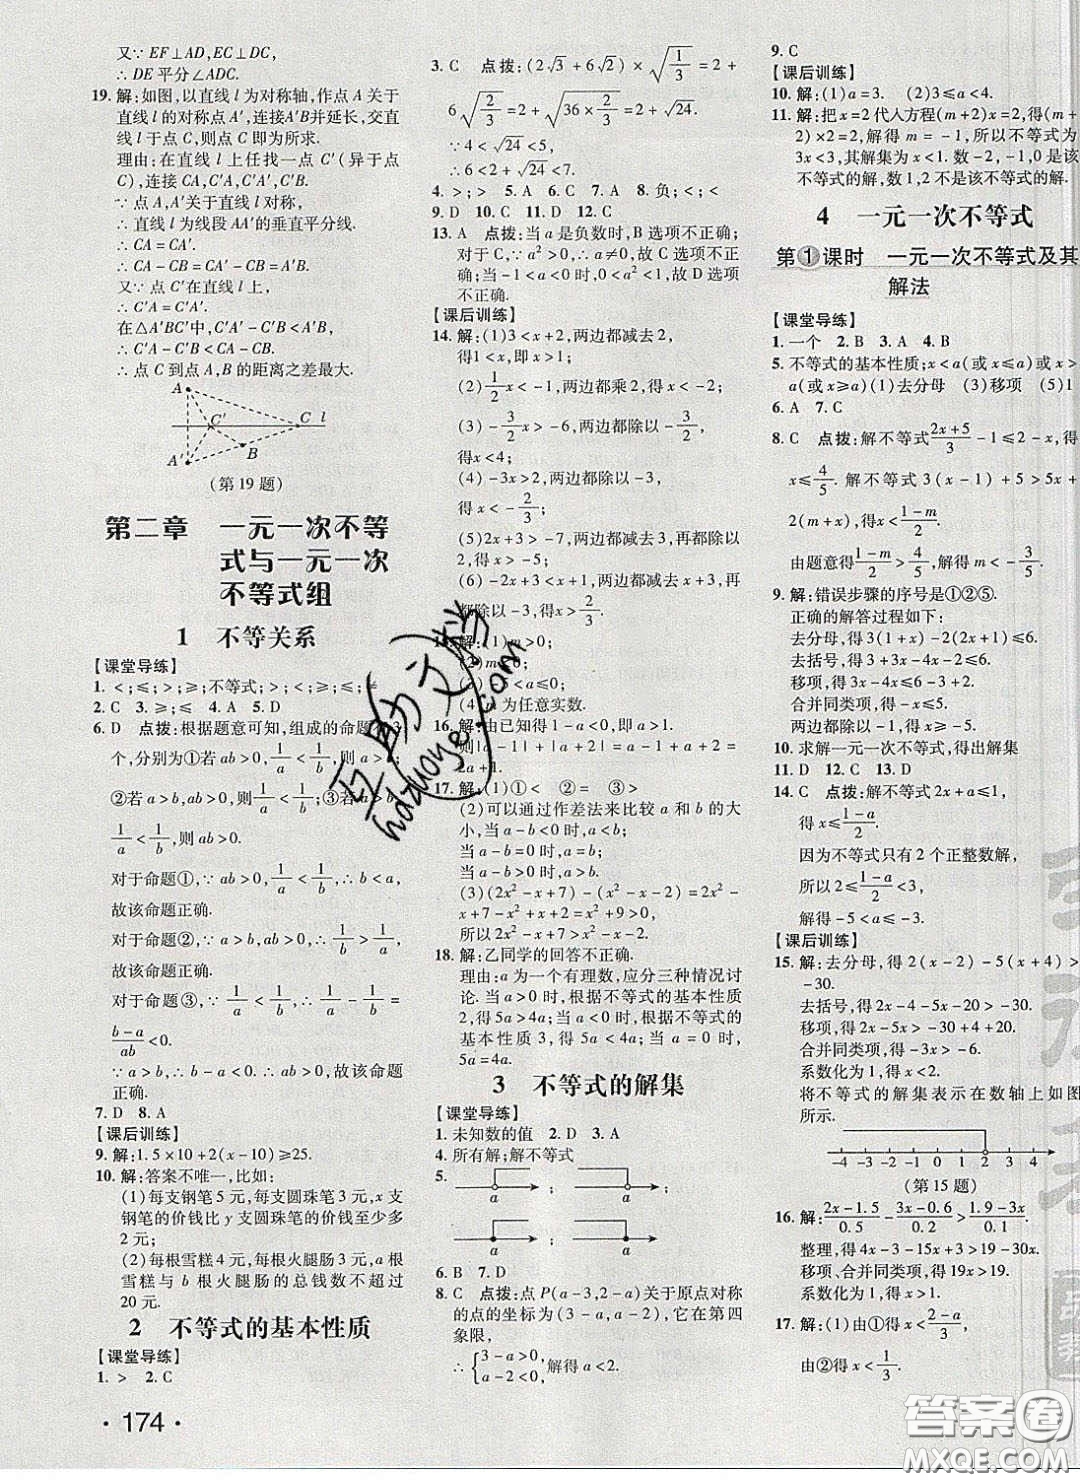 又∵EF⊥AD,EC⊥DC,
∴DE平分∠ADC.
19. 解:如图,以直线l为对称轴,作点A关于
直线l的对称点A′,连接A′B并延长,交直
线l于点C,则点C即为所求.
理由:在直线l上任找一点C′(异于点
C),连接CA,C′A,C′A′,C′B.
∵点A,A′关于直线l对称,
∴直线l为线段AA′的垂直平分线.
∴CA=CA′.
∴CA-CB=CA′-CB=A′B.
又∵点C′在直线l上,
∴C′A=C′A′.
在△A′BC′中,C′A′-C′B<A′B,
∴C′A-C′B<CA-CB.
∴点C到点A,B的距离之差最大.
A C′ C l B A′
(第19题)
第二章 一元一次不等
式与一元一次
不等式组
1 不等关系
【课堂导练】
1. <;≤;>;≥;不等式;>;<;≥;≤;≠
2. C 3. ≥;≤ 4. A 5. D
6. D 点拨:根据题意可知,组成的命题有3
个,分别为①若ab>0, 1/a<1/b,则a>b;
②若ab>0,a>b,则1/a<1/b;③若a>b,
1/a<1/b,则ab>0.
对于命题①,∵ab>0,1/a<1/b,∴b<a,
故该命题正确.
对于命题②,∵a>b,ab>0,∴1/b>1/a,
故该命题正确.
对于命题③,∵1/a<1/b,∴1/a-1/b=
(b-a)/ab<0.
∵a>b,∴b-a<0,∴ab>0,故该命题正确.
7. D 8. A
【课后训练】
9. 解:1.5×10+2(x-10)≥25.
10. 解:答案不唯一,比如:
(1)每支钢笔5元,每支圆珠笔3元,x支
钢笔的价钱比y支圆珠笔的价钱至少多
2元;
(2)每根雪糕4元,每根火腿肠2元,a根
雪糕与b根火腿肠的总钱数不超过
20元.
2 不等式的基本性质
【课堂导练】
1. > 2. C
·174·
3. C 点拨:(2√3+6√2)×√(1/3)=2+
6√(2/3)=2+√(36×2/3)=2+√24.
∵4<√24<5,
∴6<2+√24<7.
4. >;> 5. A 6. C 7. A 8. 负;<;<
9. D 10. C 11. D 12. C
13. A 点拨:当a是负数时,B选项不正确;
对于C,∵b<0,∴a+b<a-b,故C选项不
正确;当-1<a<0时,a²<-a,故D选项
不正确.
【课后训练】
14. 解:(1)3<x+2,两边都减去2,
得1<x,即x>1.
(2)1/2x<-1,两边都乘2,得x<-2.
(3)-3/2x>-6,两边都除以-3/2,
得x<4;
(4)-3x>2,两边都除以-3,
得x<-2/3;
(5)2x>-10,两边都除以
2,得x>-5;
(6)-2x+3<-3x,两边都减去3,再
都除以-3,得x>2/3.
15. 解:(1)m>0;
(2)
(3)<a≤0;
(4)为任意实数.
16. 解:由已知得1-a<0,即a>1.
则|a-1|+|a+2|=a-1+a+2=
2a+1.
17. 解:(1)①< ②= ③>
(2)可以通过作差法来比较a和b的大
小,当a-b<0时,a<b;
当a-b=0时,a=b;
当a-b>0时,a>b.
(3)(2x²-x+7)-(x²-x-2)=2x²-
x+7-x²+x+2=x²+9>0,
所以2x²-x+7>x²-x-2.
18. 解:乙同学的回答不正确.
理由:a为一个有理数,应分三种情况讨
论.当a>0时,根据不等式的基本性质
2,得5a>4a;当a<0时,根据不等式的
基本性质3,得5a<4a;当a=0时,
5a=4a.
3 不等式的解集
【课堂导练】
1. 未知数的值 2. D 3. A
4. 所有解;解不等式
5. a ; a ;
a ; a
6. B 7. D
8. C 点拨:点P(a-3,2-a)关于原点对称
的点的坐标为(3-a,a-2),它在第四
象限,
∴{3-a>0, a-2<0,解得a<2.
9. C
【课后训练】
10. 解:(1)a=3. (2)3≤a<4.
11. 解:把x=2代入方程(m+2)x=2,得(m+
2)×2=2,解得m=-1,所以不等式为
3x<3,其解集为x<1.数-2,-1,0是该
不等式的解,数1,2不是该不等式的解.
4 一元一次不等式
第1课时 一元一次不等式及其
解法
【课堂导练】
1. 一个 2. B 3. A 4. B
5. 不等式的基本性质;x<a(或x≤a)或x>
a(或x≥a)(1)去分母 (3)移项 (5)1
6. A 7. C
8. C 点拨:解不等式(2x+5)/3-1≤2-x,得
x≤4/5.解不等式3(x-1)+5>5x+
2(m+x),得x<(1-m)/2.
由题意得(1-m)/2>4/5,解得m<-3/5.
9. 解:错误步骤的序号是①②⑤.
正确的解答过程如下:
去分母,得3(1+x)-2(2x+1)≤6.
去括号,得3+3x-4x-2≤6.
移项,得3x-4x≤6-3+2.
合并同类项,得-x≤5.
两边都除以-1,得x≥-5.
10. 求解一元一次不等式,得出解集
11. D 12. C 13. D
14. C 点拨:解不等式2x+a≤1,
得x≤(1-a)/2.
因为不等式只有2个正整数解,
所以2≤(1-a)/2<3,
解得-5<a≤-3.
【课后训练】
15. 解:去分母,得2(x-2)-5(x+4)>
-30.
去括号,得2x-4-5x-20>-30.
移项,得2x-5x>-30+4+20.
合并同类项,得-3x>-6.
系数化为1,得x<2.
将不等式的解集表示在数轴上如图
所示.
-4 -3 -2 -1 0 1 2 3 4
(第15题)
16. 解:(2x-1.5)/0.5-(3x-0.6)/0.2>(1.9-3x)/0.1.
整理,得4x-3-15x+3>19-30x.
移项、合并同类项,得19x>19.
系数化为1,得x>1.
17. 解:(1)由①得x<(2-a)/3,
由②得x<1/3.
互助文档
hdzuoye.com
答案圈
MXQE.COM